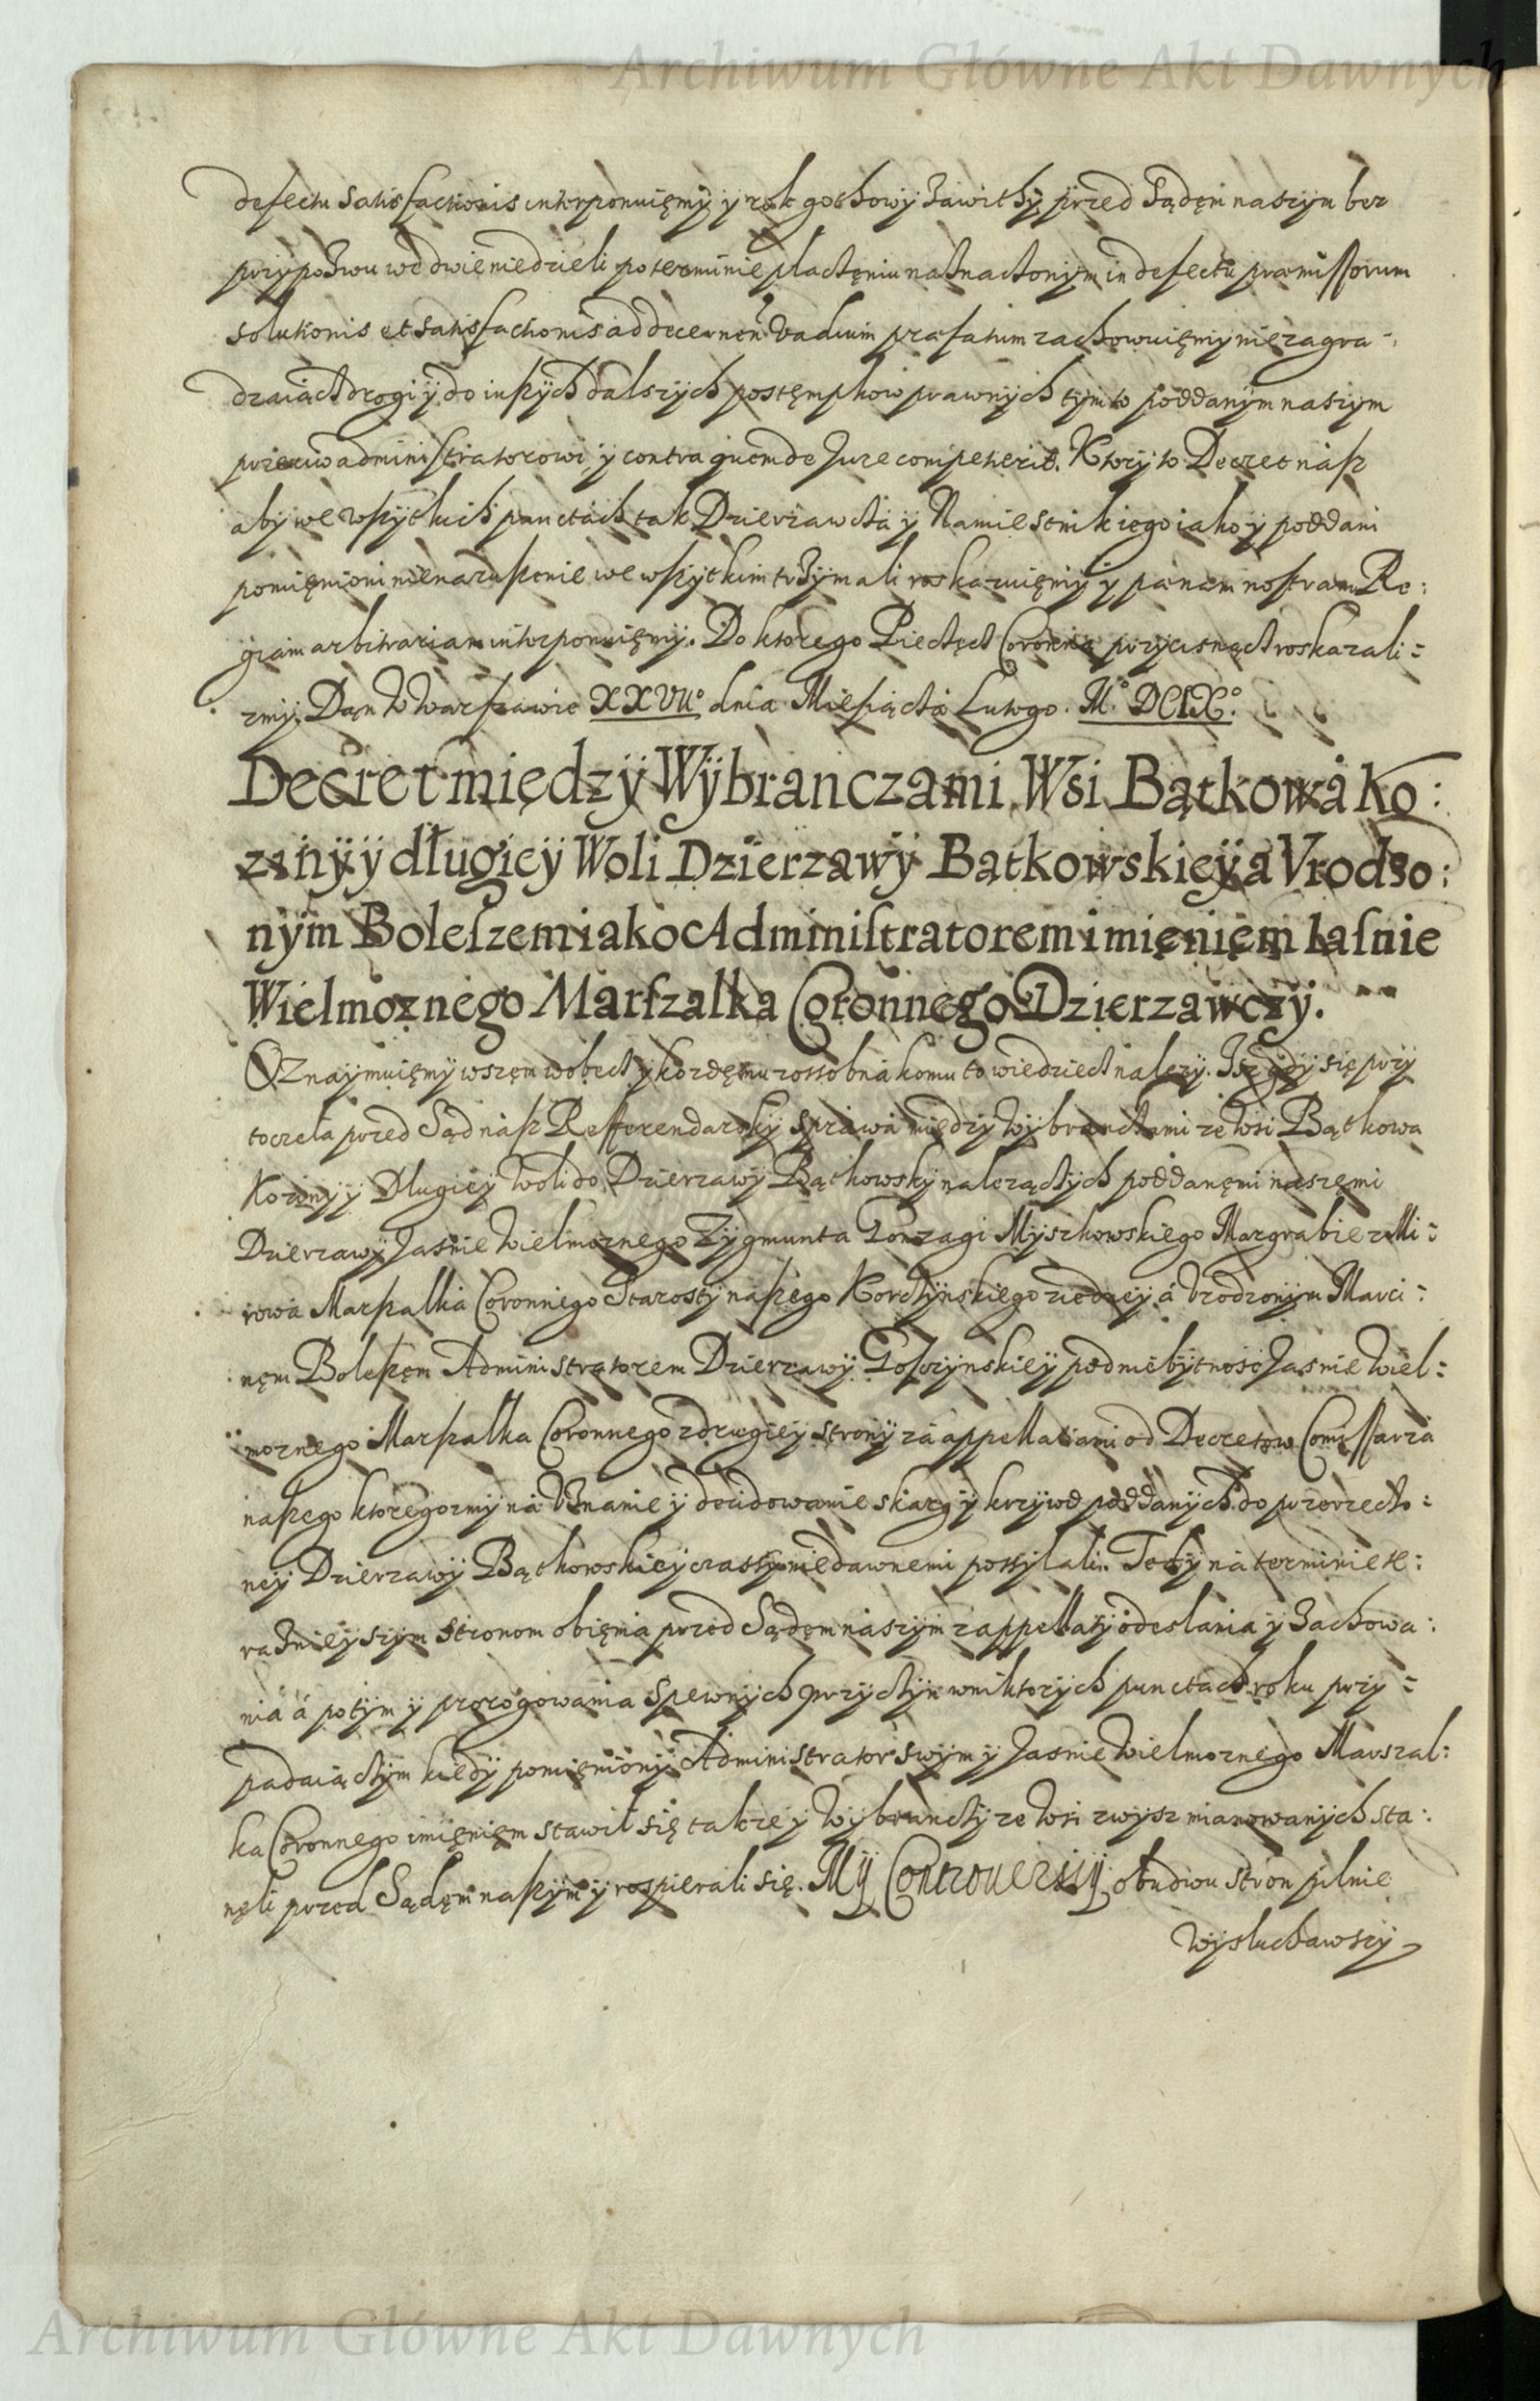 Archiwum Główne Akt Dawnych
defectu satisfactionis interponuięmy y rok gothowy zawithy przed Sądęm naszym bez
przypozwu we dwie niedzieli po terminie płacęniu naznaczonym in defectu præmissorum
solutionis et satisfactionis ad decernen vadium præfatum zachowuięmy nie zagra-
dzaiąc drogi y do inszych dalszych postęmpkow prawnych tymto poddanym naszym
przeciw administratorowi y contra quem de Jure competerit. Ktory to Decret nasz
aby we wszytkich punctach tak Dzierzawca y Namiestnik iego iako y poddani
pomięnioni nienaruszenie we wszytkim trzymali roskazuięmy y pænam nostram Re:
giam arbitrariam interponuięmy. Do ktorego Pieczęć Coronną przycisnąć roskazali=
zmy. Dan w Warszawie XXVII° dnia Miesiąca Lutego. M.° DCIX.°
Decret między Wybranczami Wsi Bątkowa Ko:
ziny y długiey Woli Dzierzawy Bątkowskiey a Vrodzo:
nym Boleszem iako Administratorem imięnięm Iasnie
Wielmoznego Marszalka Coronnego Dzierzawczy.
Oznaymuięmy wszem wobec y kozdęmu zossobna komu to wiedziec nalezy. Isz gdy się przy
toczeła przed Sąd nasz Refferendarsky sprawa między Wybrancami ze Wsi Bątkowa
Koziny y Długiey Woli do Dzierzawy Bątkowsky nalezących poddanęmi naszęmi
Dzierzawy Jasnie Wielmoznego Zygmunta Gonzagi Myszkowskiego Margrabie z Mi=
rowa Marszalka Coronnego Starosty naszego Korczynskiego z iedney a Urodzonym Marci=
nęm Boleszęm Administratorem Dzierzawy Gosczynskiey pod niebytnosc Jasnie Wiel=
moznego Marszałka Coronnego z drugiey strony za appellatiami od Decretow Comissarza
naszego ktoregozmy na Uznanie y decidowanie skarg y krzywd poddanych do przerzeczo=
ney Dzierzawy Bątkowskiey czassy niedawnemi possylali. Tedy na terminie te:
raznieyszym stronom obięma przed Sądem naszym z appellaty odeslania y Zachowa:
nia a potym y prorogowania s pewnych przyczyn w niktorych punctach roku przy=
padaiącym kiedy pomięniony Administrator swym y Jasnie Wielmoznego Marszal:
ka Coronnego imięnięm stawił się takze y Wybrancy ze Wsi zwysz mianowanych sta:
nęli przed Sądęm naszym y rospierali się. My Controversiy obudwu stron pilnie
Wysłuchawszy
Archiwum Główne Akt Dawnych